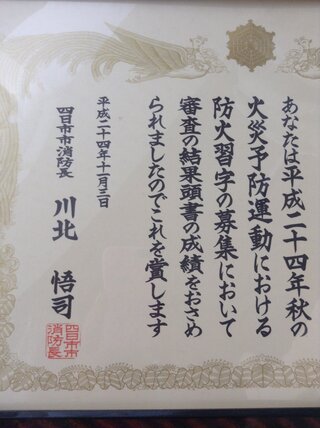 あなたは平成二十四年秋の
火災予防運動における
防火習字の募集において
審査の結果頭書の成績をおさめ
られましたのでこれを賞します
平成二十四年十一月三日
四日市市消防長 川北 悟司
四日市市消防長